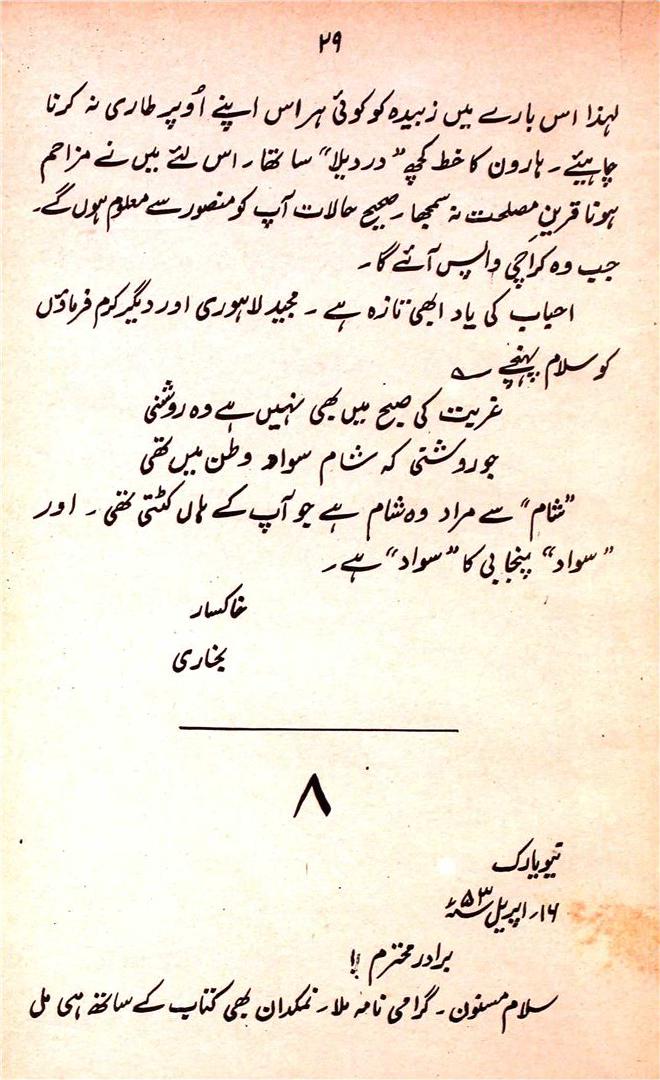 ۲۹
لہذا اس بارے میں زبیدہ کو کوئی ہراس اپنے اُوپر طاری نہ کرنا
چاہیئے۔ ہارون کا خط کچھ "در دبلا" سا تھا۔ اس لئے میں نے مزاحم
ہونا قرینِ مصلحت نہ سمجھا۔ صحیح حالات آپ کو منصور سے معلوم ہوں گے۔
جب وہ کراچی واپس آئے گا۔
احباب کی یاد ابھی تازہ ہے۔ مجید لاہوری اور دیگر کرم فرماؤں
کو سلام پہنچے ؎
غربت کی صبح میں بھی نہیں ہے وہ روشنی
جو روشنی کہ شام سوادِ وطن میں تھی
"شام" سے مراد وہ شام ہے جو آپ کے ہاں کٹتی تھی۔ اور
"سواد" پنجابی کا "سواد" ہے۔
خاکسار
بخاری
۸
نیویارک
۱۶۔ اپریل ۵۳ء
برادر محترم !!
سلام مسنون۔ گرامی نامہ ملا۔ نمکدان بھی کتاب کے ساتھ ہی ملی